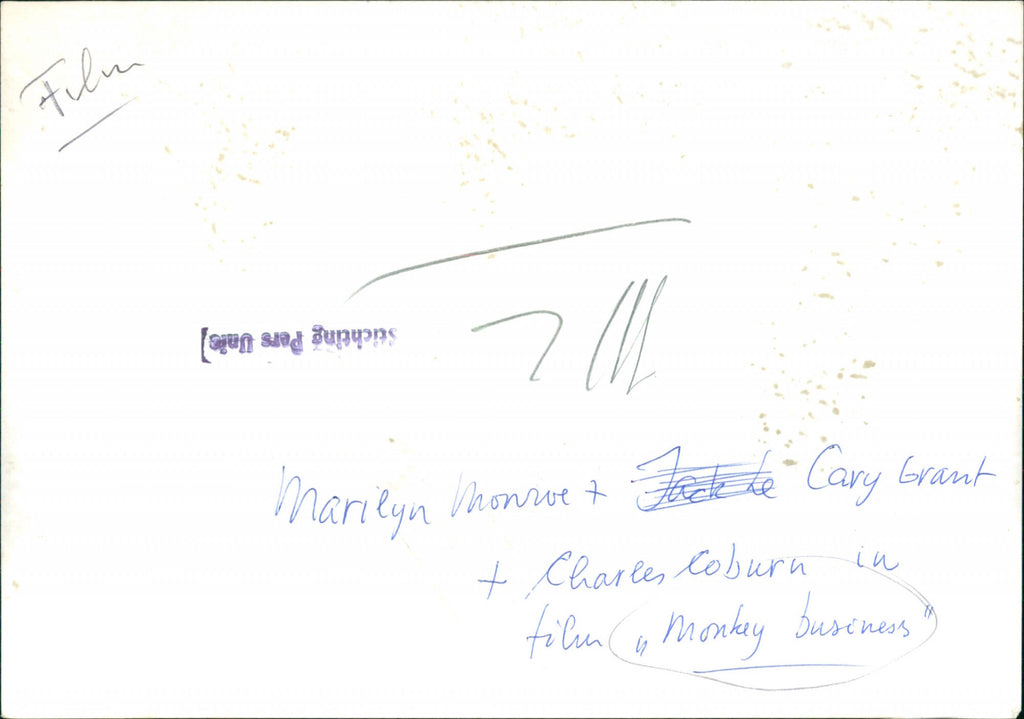 Film
[Stichting Pers Unie]
Marilyn Monroe + Jack Le Cary Grant
+ Charles Coburn in
film „Monkey business"